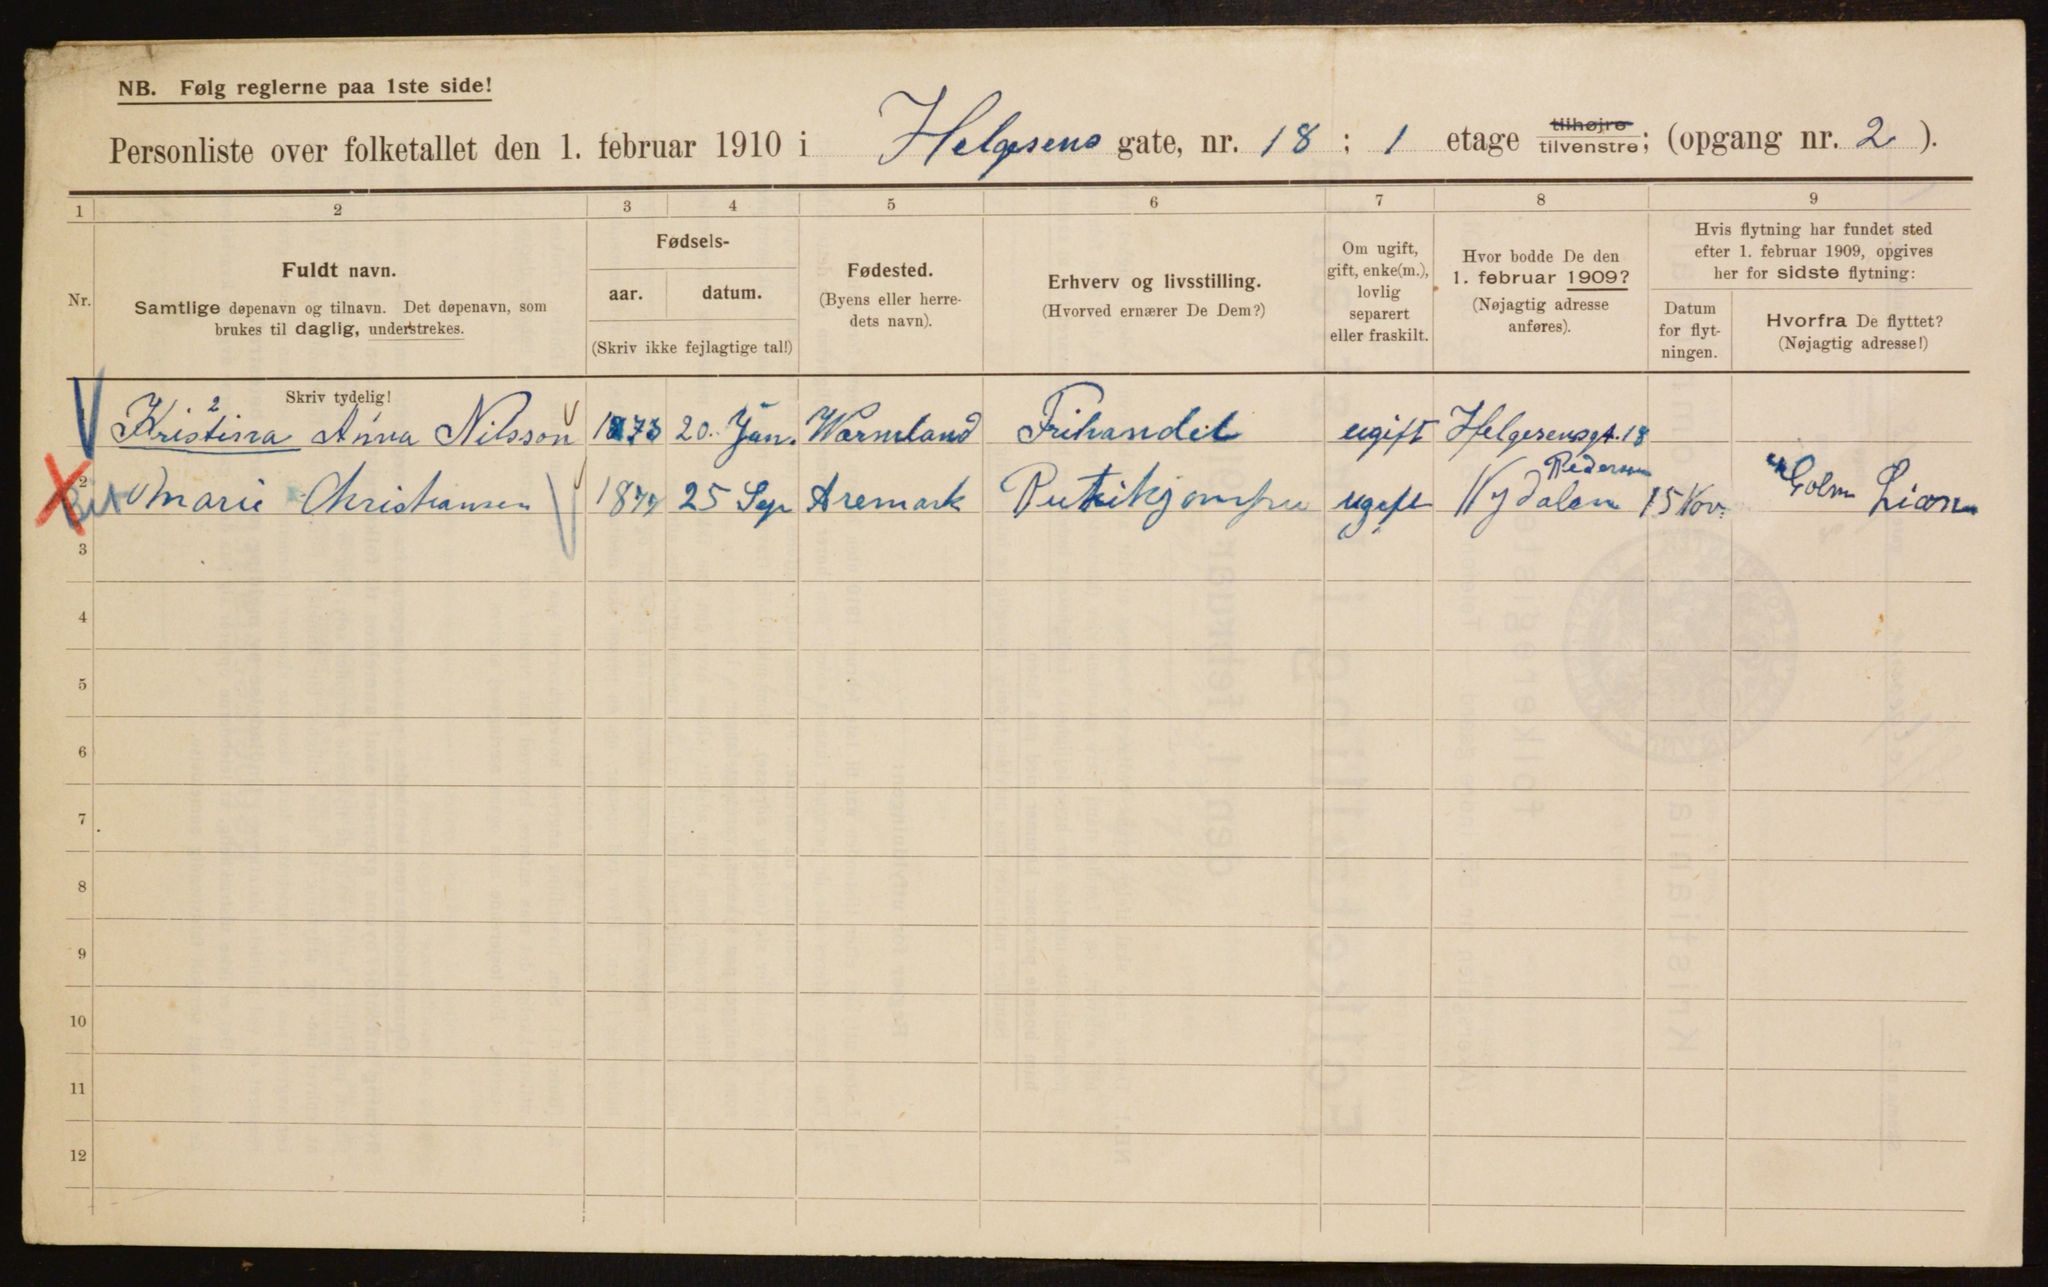 NB. Følg reglerne paa 1ste side!
Personliste over folketallet den 1. februar 1910 i Helgesens gate, nr. 18 ; 1 etage tilhøjre tilvenstre; (opgang nr. 2 ).
1 2 3 4 5 6 7 8 9
Nr.
Fuldt navn.
Samtlige døpenavn og tilnavn. Det døpenavn, som
brukes til daglig, understrekes.
Fødsels-
aar. datum.
(Skriv ikke fejlagtige tal!)
Fødested.
(Byens eller herre-
dets navn).
Erhverv og livsstilling.
(Hvorved ernærer De Dem?)
Om ugift,
gift, enke(m.),
lovlig
separert
eller fraskilt.
Hvor bodde De den
1. februar 1909?
(Nøjagtig adresse
anføres).
Hvis flytning har fundet sted
efter 1. februar 1909, opgives
her for sidste flytning:
Datum
for flyt-
ningen.
Hvorfra De flyttet?
(Nøjagtig adresse!)
Skriv tydelig!
1 Kristina 2 Anna 1 Nilsson 1873 20. Jan. Warmland Frihandel ugift Helgesensgt. 18
2 Marie Christiansen 25 Sep Aremark ugift Nydalen Pedersen 15 Nov.
3
4
5
6
7
8
9
10
11
12